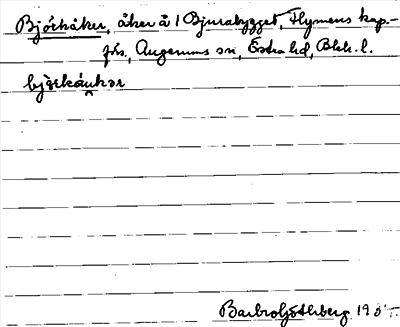 Björkåker, åker å 1 Bjurabygget, Flymens kap.-
förs., Augerums sn, Östra hd, Blek. l.
Barbro Götherberg 195